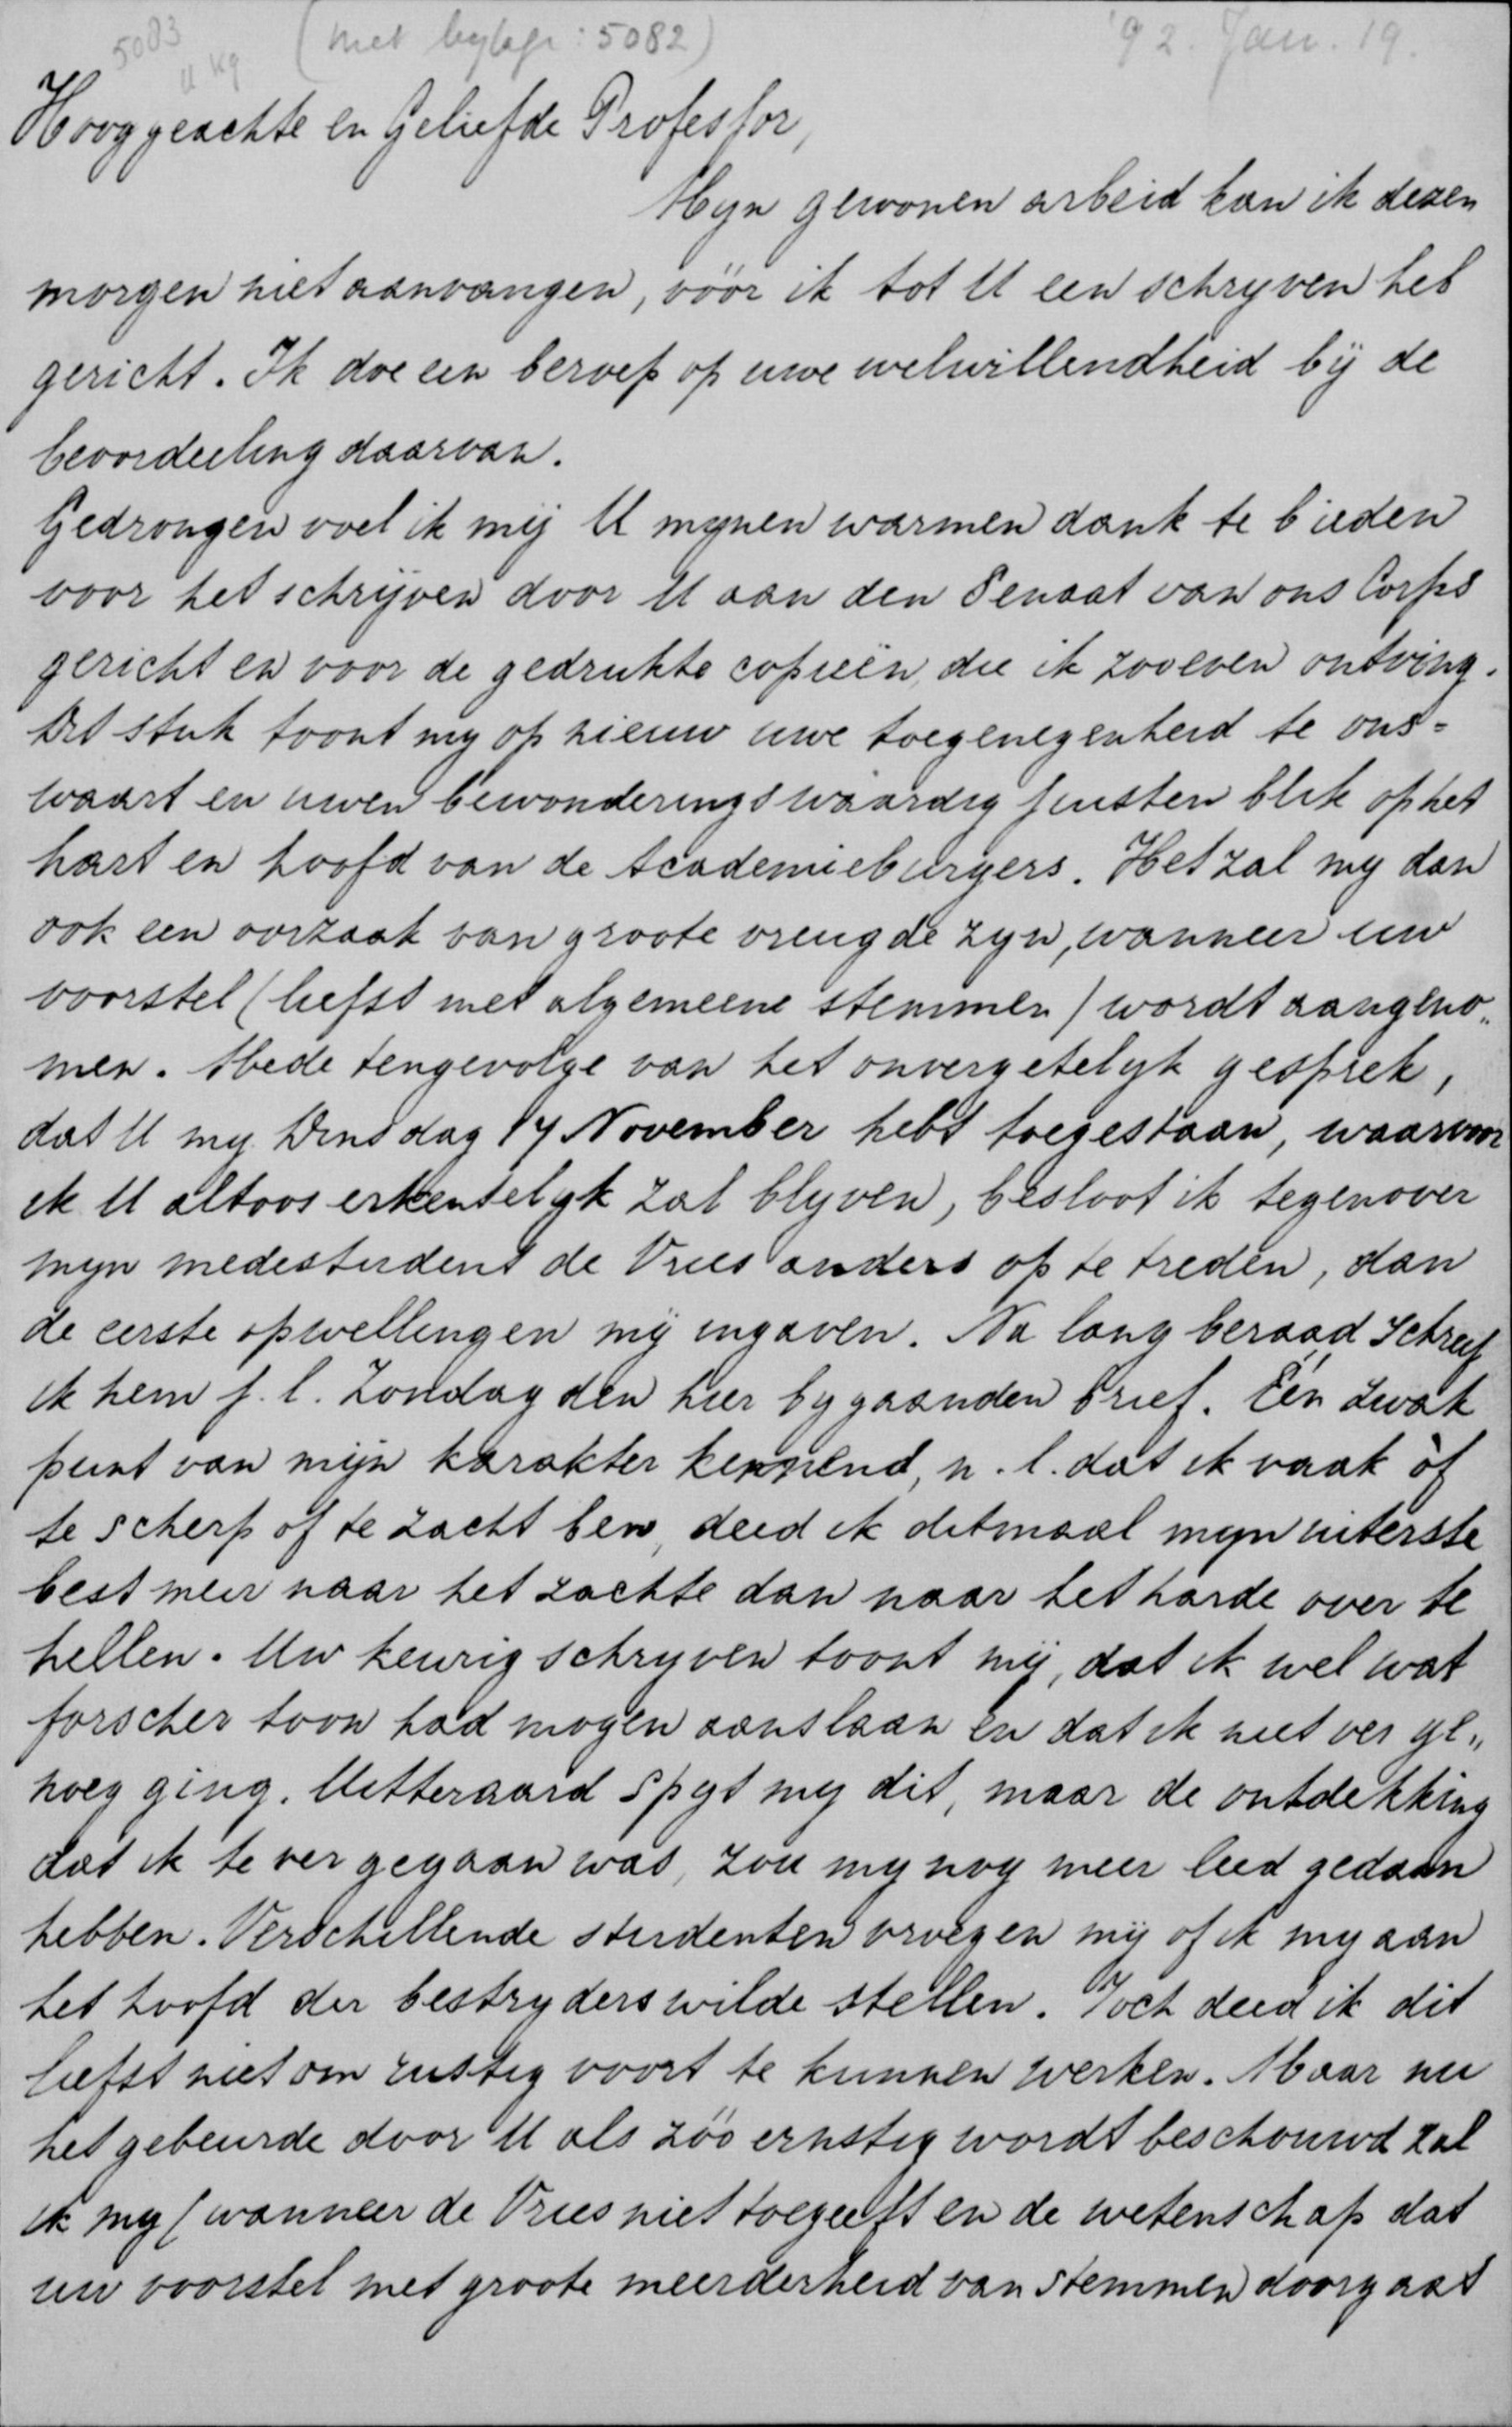 5083 (met bylage: 5082) '92. Jan. 19.
Hooggeachte en Geliefde Professor,
Myn gewonen arbeid kan ik dezen
morgen niet aanvangen, vóór ik tot U een schryven heb
gericht. Ik doe een beroep op uwe welwillendheid bij de
beoordeeling daarvan.
Gedrongen voel ik mij U mynen warmen dank te bieden
voor het schrijven door U aan den Senaat van ons Corps
gericht en voor de gedrukte copieën, die ik zooeven ontving.
Dit stuk toont my op nieuw uwe toegenegenheid te ons-
waart en uwen bewonderingswaardig juisten blik op het
hart en hoofd van de Academieburgers. Het zal my dan
ook een oorzaak van groote vreugde zyn, wanneer uw
voorstel (liefst met algemeene stemmen) wordt aangeno„
men. Mede tengevolge van het onvergetelyk gesprek,
dat U my Dinsdag 17 November hebt toegestaan, waarvoor
ik U altoos erkentelyk zal blyven, besloot ik tegenover
myn medestudent de Vries anders op te treden, dan
de eerste opwellingen mij ingaven. Na lang beraad schreef
ik hem j.l. Zondag den hier bygaanden brief. Eén zwak
punt van mijn karakter kennend, n.l. dat ik vaak òf
te scherp of te zacht ben, deed ik ditmaal myn uiterste
best meer naar het zachte dan naar het harde over te
hellen. Uw keurig schryven toont mij, dat ik wel wat
forscher toon had mogen aanslaan en dat ik niet ver ge„
noeg ging. Uitteraard spyt my dit, maar de ontdekking
dat ik te ver gegaan was, zou my nog meer leed gedaan
hebben. Verschillende studenten vroegen mij of ik my aan
het hoofd der bestryders wilde stellen. Toch deed ik dit
liefst niet om rustig voort te kunnen werken. Maar nu
het gebeurde door U als zóó ernstig wordt beschouwd zal
ik my (wanneer de Vries niet toegeeft en de wetenschap dat
uw voorstel met groote meerderheid van stemmen doorgaat